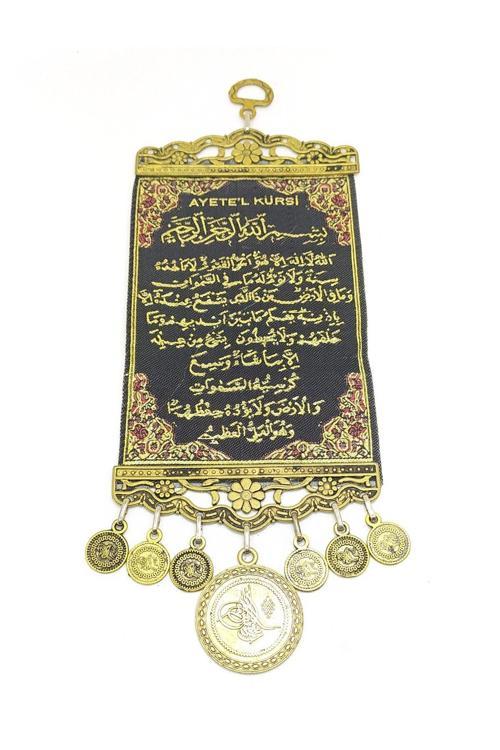 AYETE'L KÜRSİ
بسم الله الرحمن الرحيم
الله لا اله الا هو الحي القيوم لا تأخذه
سنة ولا نوم له ما في السموات
وما في الارض من ذا الذي يشفع عنده الا
باذنه يعلم ما بين ايديهم وما
خلفهم ولا يحيطون بشئ من علمه
الا بما شاء وسع
كرسيه السموات
والارض ولا يؤده حفظهما
وهو العلي العظيم